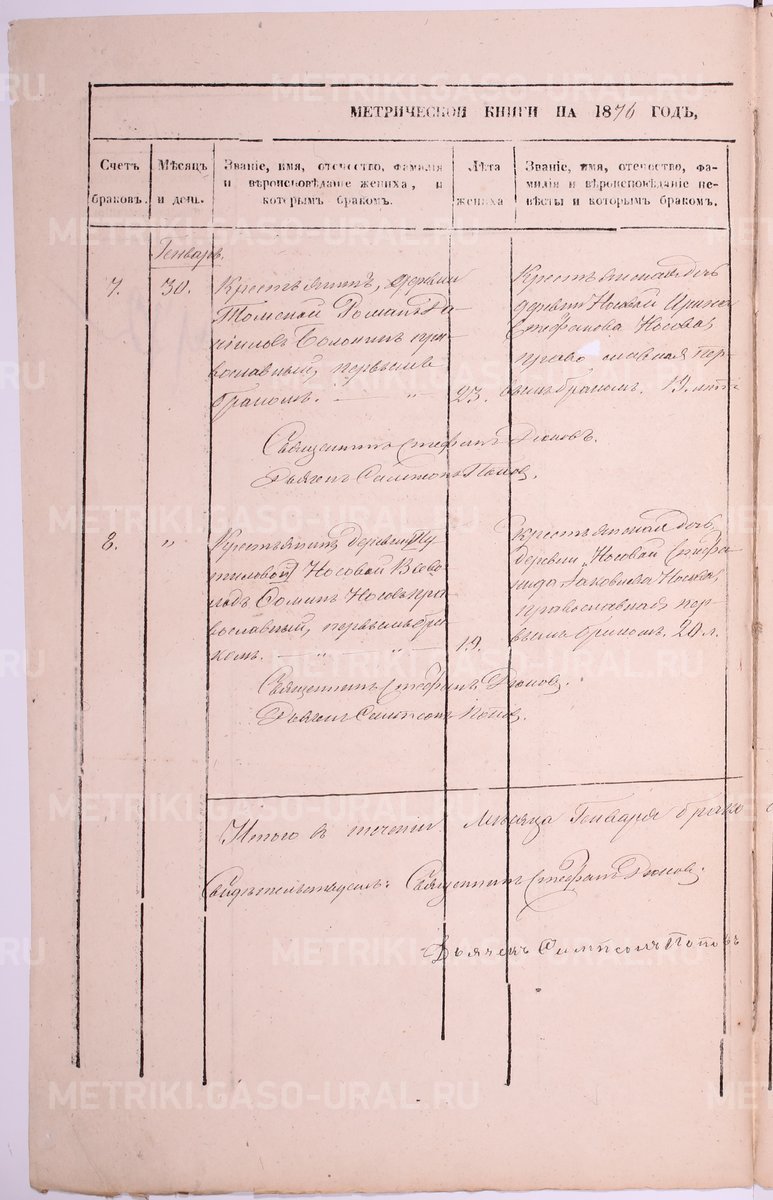 МЕТРИЧЕСКОЙ КНИГИ НА 1876 ГОДЪ,
Счетъ браковъ.
Мѣсяцъ и день.
Званіе, имя, отечество, фамилія
и вѣроисповѣданіе жениха, и
которымъ бракомъ.
Лѣта
жениха
Званіе, имя, отечество, фа-
милія и вѣроисповѣданіе не-
вѣсты и которымъ бракомъ.
Генварь.
7. 30.
Крестьянинъ, деревни
Томской Романъ Да-
ниловъ пра-
вославный, первымъ
бракомъ. — „ — 23.
Крестьянская дочь
деревни Носовой Ирина
Стефанова Носова,
православная пер-
вымъ бракомъ. 19. лѣтъ
Священникъ Стефанъ
Дьяконъ Симеонъ Поповъ.
8. „
Крестьянинъ деревни
Носовой
Носовъ пра-
вославный, первымъ бра-
комъ. — „ — „ — 19.
Крестьянская дочь,
деревни Носовой Стефа-
нида Іаковлева Носова,
православная пер-
вымъ бракомъ. 20 л.
Священникъ Стефанъ
Дьяконъ Симеонъ Поповъ.
Итого в течении Месяца Генваря брако
Свидѣтельствуемъ: Священникъ Стефанъ
Симеонъ Поповъ
METRIKI.GASO-URAL.RU